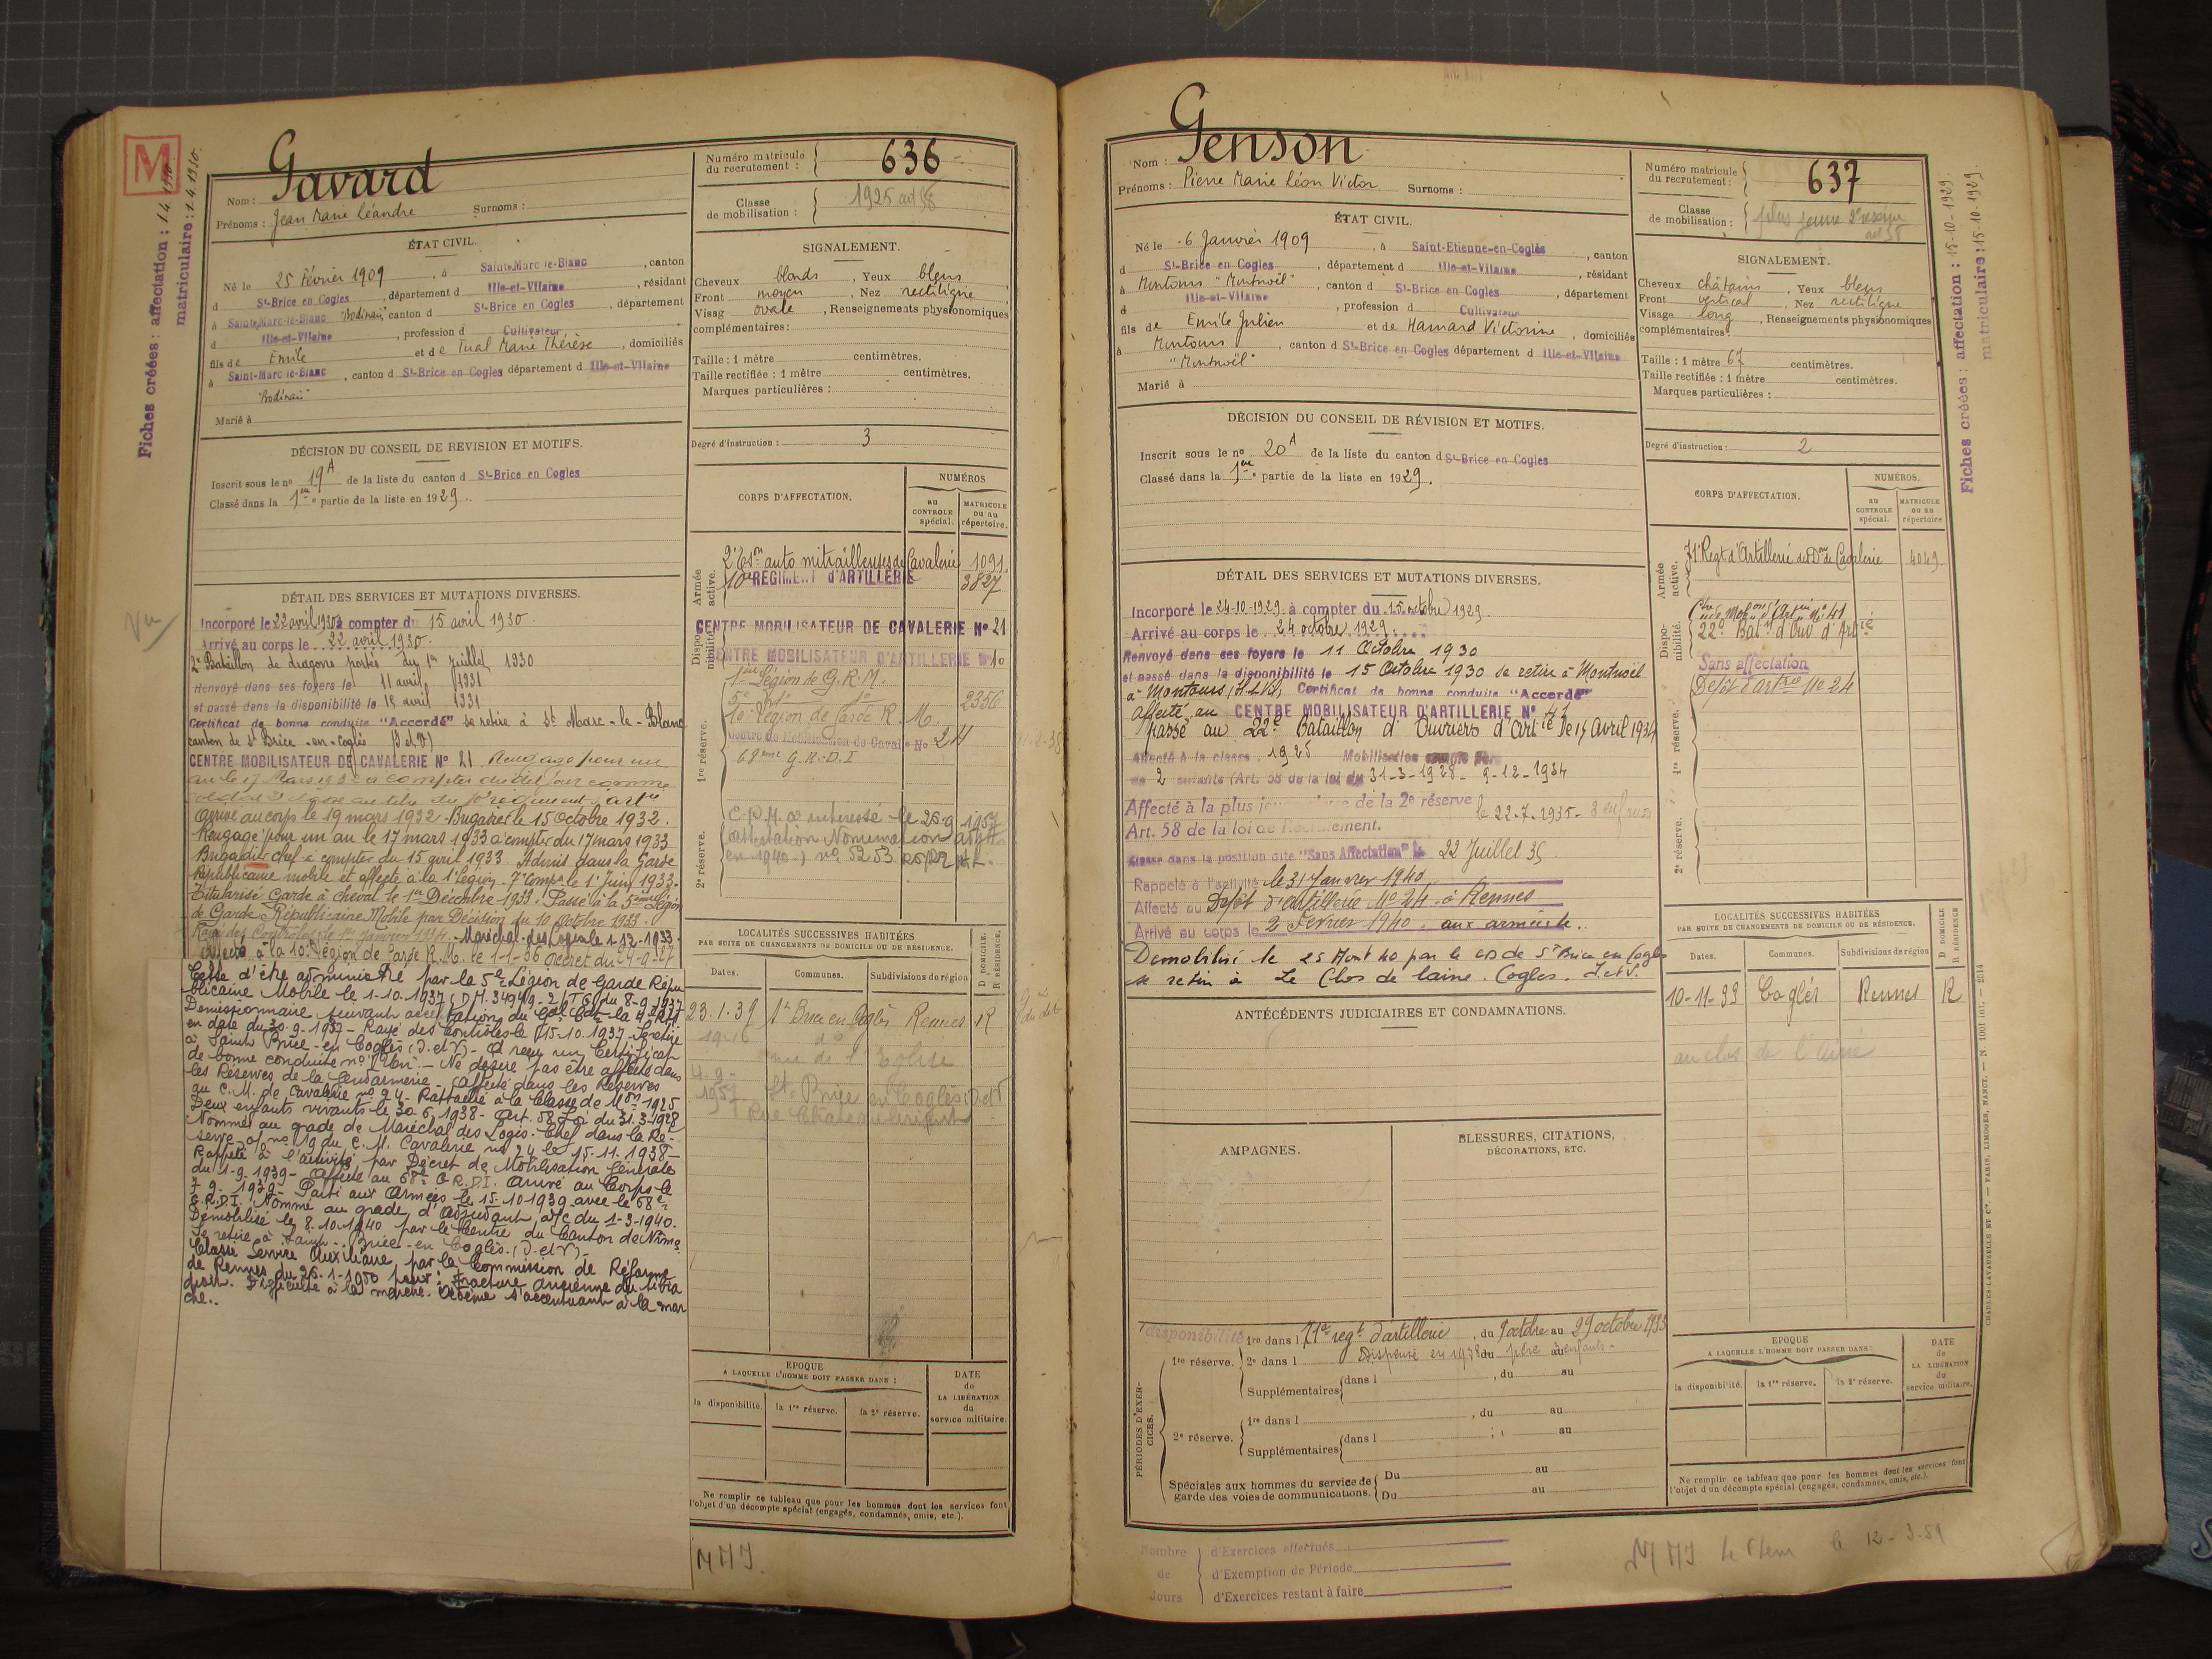 M
Fiches créées : affectation : 1.4.1930.
matriculaire : 1.4.1930.
Nom : Gavard
Prénoms : Jean Marie Léandre Surnoms :
ÉTAT CIVIL.
Né le 25 Février 1909, à Saint-Marc-le-Blanc, canton
d St-Brice en Cogles, département d Ille-et-Vilaine, résidant
à Saint-Marc-le-Blanc canton d St-Brice en Cogles, département
d Ille-et-Vilaine, profession d Cultivateur
fils de Emile et de Tual Marie Thérèse, domiciliés
à Saint-Marc-le-Blanc, canton d St-Brice en Cogles département d Ille-et-Vilaine
Marié à
DÉCISION DU CONSEIL DE REVISION ET MOTIFS.
Inscrit sous le no 19 A de la liste du canton d St-Brice en Cogles
Classé dans la 1ère partie de la liste en 1929.
DÉTAIL DES SERVICES ET MUTATIONS DIVERSES.
Vu
Incorporé le 22 avril 1930 à compter du 15 avril 1930.
Arrivé au corps le 22 avril 1930.
2e Bataillon de dragons portés du 1er juillet 1930
Renvoyé dans ses foyers le 11 avril 1931
et passé dans la disponibilité le 15 avril 1931
Certificat de bonne conduite "Accordé" se retire à St Marc-le-Blanc
canton de St Brice-en-Cogles (I et V)
CENTRE MOBILISATEUR DE CAVALERIE No 21 Rengagé pour un
an le 17 Mars 1932 à compter du dit jour comme
soldat de 2e classe au titre du 10e régiment d'artie
arrivé au corps le 19 mars 1932. Brigadier le 15 Octobre 1932.
Rengagé pour un an le 17 mars 1933 à compter du 17 mars 1933
Brigadier chef à compter du 15 avril 1933. Admis dans la Garde
Républicaine mobile et affecté à la 1e Légion. 7e Comp. le 1er Juin 1933.
Titularisé Garde à cheval le 1er Décembre 1933. Passé à la 5ème Légion
de Garde Républicaine Mobile par Décision du 10 Octobre 1933.
Rayé des Contrôles le 1er janvier 1934. Maréchal-des-Logis le 1-12-1933.
à la 10e Légion de Garde R.M. le 1-1-36 Décret du 24-9-27
Cesse d'être administré par la 5e Légion de Garde Répu-
blicaine Mobile le 1-10-1937 (D.M. 34949-2/TG du 8-9-1937
Démissionnaire suivant acceptation du Gal Cdt la 4e Rég.
en date du 30-9-1937 - Rayé des Contrôles le 15-10-1937 - Se retire
à Saint Brice-en-Coglès (I.et V) - A reçu un Certificat
de bonne conduite. - Ne désire pas être affecté dans
les Réserves de la Gendarmerie - Affecté dans les Réserves
au C.M. de Cavalerie no 24 - Rattaché à la Classe de Mon 1925
Deux enfants vivants le 30.6.1938 - Art. 58 Loi du 31.3.1928
Nommé au grade de Maréchal des Logis-Chef dans la Ré-
serve. O/ no 19 du C.M. Cavalerie no 24 le 15-11-1938 -
Rappelé à l'activité par Décret de Mobilisation Générale
du 1-9-1939 - Affecté au 68e G.R.D.I. Arrivé au Corps le
7-9-1939 - Parti aux Armées le 15-10-1939 avec le 68e
G.R.D.I. Nommé au grade d'Adjudant, à/c du 1-3-1940.
Démobilisé le 8-10-1940 par le Centre du Canton de Nîmes
Se retire à Saint-Brice-en-Coglès (I-et-V) -
Classé Service Auxiliaire par la Commission de Réforme
de Rennes du 26-1-1950 pour : Fracture ancienne du tibia
droit. Difficulté à la marche. Oedème s'accentuant à la mar
che..
Numéro matricule du recrutement : 636
Classe de mobilisation : 1925 art 58
SIGNALEMENT.
Cheveux blonds, Yeux bleus
Front moyen, Nez rectiligne
Visag ovale, Renseignements physionomiques
complémentaires :
Taille : 1 mètre centimètres.
Taille rectifiée : 1 mètre centimètres.
Marques particulières :
Degré d'instruction : 3
CORPS D'AFFECTATION.
NUMÉROS
au CONTROLE spécial.
MATRICULE ou au répertoire.
Armée active.
2e Eson auto mitrailleuses de Cavalerie 1091
10e REGIMENT d'ARTILLERIE 3827
Disponibilité
CENTRE MOBILISATEUR DE CAVALERIE No 21
CENTRE MOBILISATEUR D'ARTILLERIE No 10
1re réserve.
1ère Légion de G.R.M.
5e do do 2356
10e Légion de Garde R. M.
Centre de Mobilisation de Caval. No 24
68ème G.R.D.I
2e réserve.
en 1940
LOCALITÉS SUCCESSIVES HABITÉES
PAR SUITE DE CHANGEMENTS DE DOMICILE OU DE RÉSIDENCE.
Dates. Communes. Subdivisions de région D DOMICILE. R RÉSIDENCE.
23.1.39 St Brice en Coglès Rennes R
rue de l'Eglise
4-9-
1957 St-Brice en Coglès I.et V
Rue Chateaubriand
EPOQUE
A LAQUELLE L'HOMME DOIT PASSER DANS :
la disponibilité. la 1re réserve. la 2e réserve.
DATE de LA LIBÉRATION du service militaire.
Ne remplir ce tableau que pour les hommes dont les services font
l'objet d'un décompte spécial (engagés, condamnés, omis, etc.).
Nom : Genson
Prénoms : Pierre Marie Léon Victor Surnoms :
ÉTAT CIVIL.
Né le 6 Janvier 1909, à Saint-Etienne-en-Coglès, canton
d St-Brice en Cogles, département d Ille-et-Vilaine, résidant
à Montours "Montnoël", canton d St-Brice en Cogles, département
d Ille-et-Vilaine, profession d Cultivateur
fils de Emile Julien et de Hamard Victorine, domiciliés
à Montours, canton d St-Brice en Cogles département d Ille-et-Vilaine
"Montnoël"
Marié à
DÉCISION DU CONSEIL DE RÉVISION ET MOTIFS.
Inscrit sous le no 20 A de la liste du canton d St-Brice en Cogles
Classé dans la 1ère partie de la liste en 1929.
DÉTAIL DES SERVICES ET MUTATIONS DIVERSES.
Incorporé le 24-10-1929 à compter du 15 octobre 1929.
Arrivé au corps le 24 octobre 1929.
Renvoyé dans ses foyers le 11 Octobre 1930
et passé dans la disponibilité le 15 Octobre 1930 se retire à Montnoël
à Montours (I & V) Certificat de bonne conduite "Accordé"
Affecté au CENTRE MOBILISATEUR D'ARTILLERIE No 41
passé au 22e Bataillon d'Ouvriers d'Artie le 15 Avril 1934
Affecté à la classe 1925 Mobilisable comme père
de 2 enfants (Art. 58 de la loi du 31-3-1928 - 9-12-1934
Affecté à la plus jeune classe de la 2e réserve le 22-7-1935 - 3 enfants
Art. 58 de la loi de recrutement.
Classé dans la position dite "Sans Affectation" le 22 Juillet 35.
Rappelé à l'activité le 31 Janvier 1940
Affecté au Dépôt d'artillerie No 24 à Rennes
Arrivé au corps le 2 Février 1940
Démobilisé le 25 Août 40 par le CD de St Brice en Cogles
se retire à Le Clos de Laine. Cogles. I.et V.
ANTÉCÉDENTS JUDICIAIRES ET CONDAMNATIONS.
AMPAGNES.
BLESSURES, CITATIONS, DÉCORATIONS, ETC.
PÉRIODES D'EXERCICES.
disponibilité
1re réserve.
1re dans l 71e regt d'artillerie, du 9 octobre au 29 octobre 1933
2e dans l Dispensé en 1938 du père au enfants
Supplémentaires dans l , du au
du au
2e réserve.
1re dans l , du au
Supplémentaires dans l au
Spéciales aux hommes du service de garde des voies de communications. Du au
Du au
Numéro matricule du recrutement : 637
Classe de mobilisation : plus jeune 2e réserve
art 58
SIGNALEMENT.
Cheveux châtains, Yeux bleus
Front vertical, Nez rectiligne
Visage long, Renseignements physionomiques
complémentaires :
Taille : 1 mètre 67 centimètres.
Taille rectifiée : 1 mètre centimètres.
Marques particulières :
Degré d'instruction : 2
CORPS D'AFFECTATION.
NUMÉROS.
au CONTROLE spécial.
MATRICULE ou au répertoire
Armée active.
71e Regt d'Artillerie de Don de Cavalerie 4049
Disponibilité.
Ctre de Mobon d'Artie No 41
22e Batn d'Ouv d'Artie
Sans affectation
Dépôt d'artrie No 24
1re réserve.
2e réserve.
LOCALITÉS SUCCESSIVES HABITÉES
PAR SUITE DE CHANGEMENTS DE DOMICILE OU DE RÉSIDENCE.
Dates. Communes. Subdivisions de région D DOMICILE R RÉSIDENCE
10-11-39 Coglès Rennes R
au clos de l'aine
EPOQUE
A LAQUELLE L'HOMME DOIT PASSER DANS :
la disponibilité. la 1re réserve. la 2e réserve.
DATE de LA LIBÉRATION du service militaire.
Ne remplir ce tableau que pour les hommes dont les services font
l'objet d'un décompte spécial (engagés, condamnés, omis, etc.).
Fiches créées : affectation : 15-10-1929.
matriculaire : 15-10-1929.
CHARLES-LAVAUZELLE ET Cie — PARIS, LIMOGES, NANCY.
Nombre de Jours
d'Exercices effectués
d'Exemption de Période
d'Exercices restant à faire
le 12-3-59